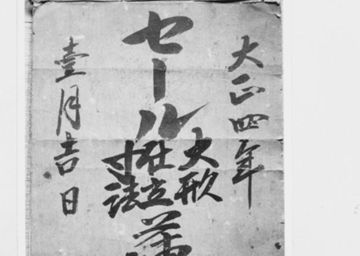 大正四年
セール
大形
仕立
寸法
壹月吉日